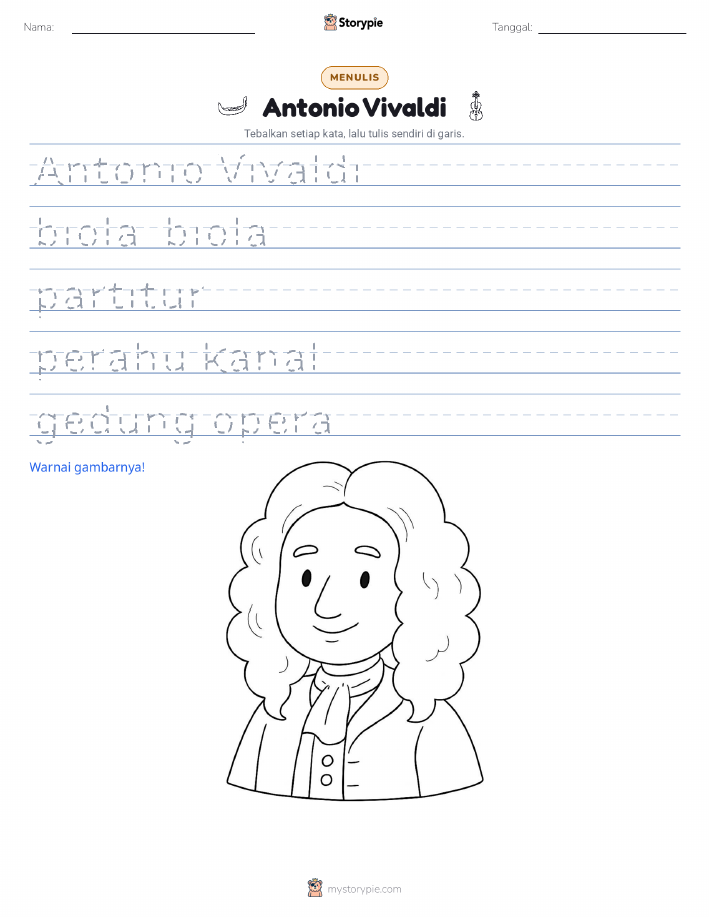 Nama:
Storypie
Tanggal:
MENULIS
Antonio Vivaldi
Tebalkan setiap kata, lalu tulis sendiri di garis.
Antonio Vivaldi
biola biola
partitur
perahu kanal
gedung opera
Warnai gambarnya!
mystorypie.com